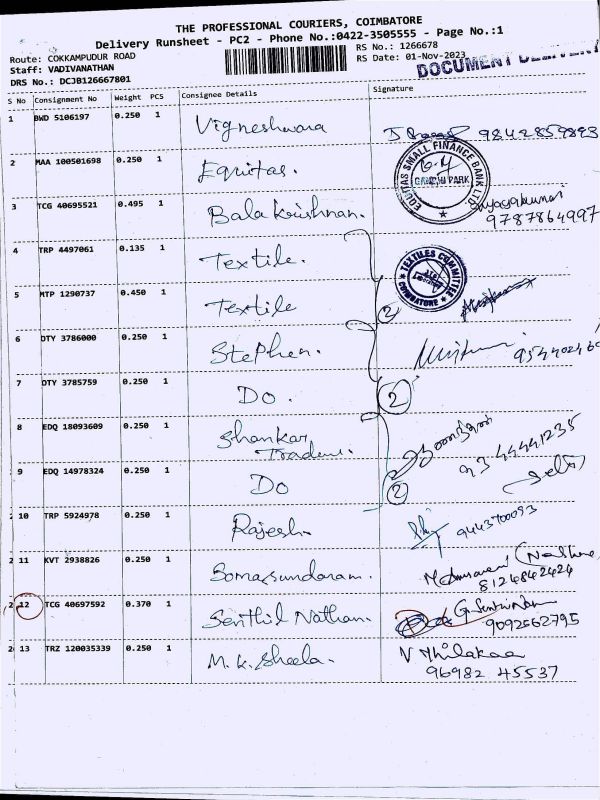 THE PROFESSIONAL COURIERS, COIMBATORE
Delivery Runsheet - PC2 - Phone No.:0422-3505555 - Page No.:1
Route: COKKAMPUDUR ROAD
RS No.: 1266678
Staff: VADIVANATHAN
RS Date: 01-Nov-2023
DRS No.: DCJB126667801
DOCUMENT DELIVERY
S No Consignment No Weight PCS Consignee Details Signature
1 BWD 5106197 0.250 1 Vigneshwara 9842859893
2 MAA 100501698 0.250 1 Equitas.
EQUITAS SMALL FINANCE BANK LTD.
GANDHI PARK
3 TCG 40695521 0.495 1 Bala Krishnan. 9787864997
4 TRP 4497061 0.135 1 Textile.
TEXTILES COMMITTEE
COIMBATORE
5 MTP 1290737 0.450 1 Textile 2
6 DTY 3786000 0.250 1 Stephen.
7 DTY 3785759 0.250 1 Do. 2
8 EDQ 18093609 0.250 1 Shankar Traders. 93 44441235
9 EDQ 14978324 0.250 1 Do 2
2 10 TRP 5924978 0.250 1 Rajesh. 9443700093
2 11 KVT 2938826 0.250 1 Somasundaram. 8124842424
2 12 TCG 40697592 0.370 1 Senthil Nathan. 9092562795
2 13 TRZ 120035339 0.250 1 M.K. Sheela. V Thilakaa
96982 45537